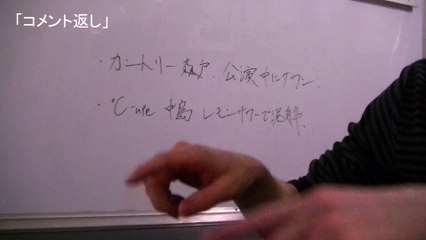 「コメント返し」
・カントリー森戸、公演中にダウン
・℃-ute 中島 レモンサワーで泥酔